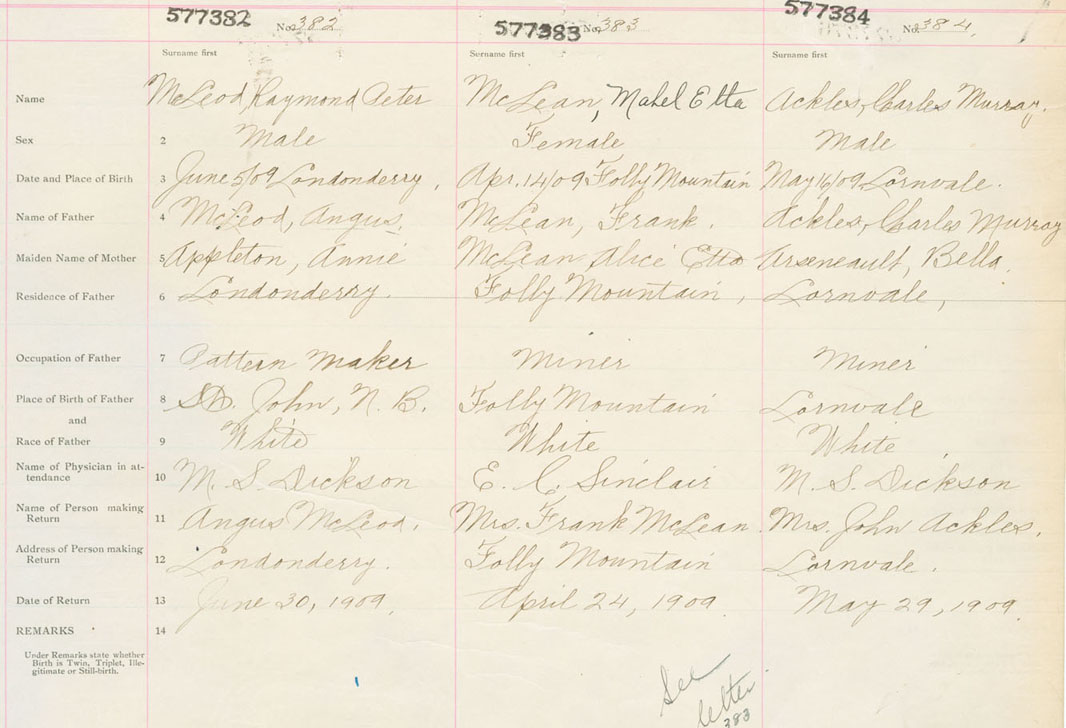 577382 No. 382 577383 No. 383 577384 No. 384,
Surname first Surname first Surname first
Name McLeod, Raymond Peter McLean, Mabel Etta Ackles, Charles Murray.
Sex 2 Male Female Male
Date and Place of Birth 3 June 5/09 Londonderry, Apr. 14/09 Folly Mountain May 16/09 Lornvale.
Name of Father 4 McLeod, Angus. McLean, Frank. Ackles, Charles Murray
Maiden Name of Mother 5 Appleton, Annie McLean, Alice Etta Arseneault, Bella.
Residence of Father 6 Londonderry. Folly Mountain, Lornvale,
Occupation of Father 7 Pattern Maker Miner Miner
Place of Birth of Father 8 St. John, N. B. Folly Mountain Lornvale
and
Race of Father 9 White White White
Name of Physician in at-
tendance 10 M. S. Dickson E. C. Sinclair M. S. Dickson
Name of Person making
Return 11 Angus McLeod. Mrs. Frank McLean. Mrs. John Ackles.
Address of Person making
Return 12 Londonderry. Folly Mountain Lornvale.
Date of Return 13 June 30, 1909. April 24, 1909. May 29, 1909.
REMARKS 14
Under Remarks state whether
Birth is Twin, Triplet, Ille-
gitimate or Still-birth.
See
letter
383